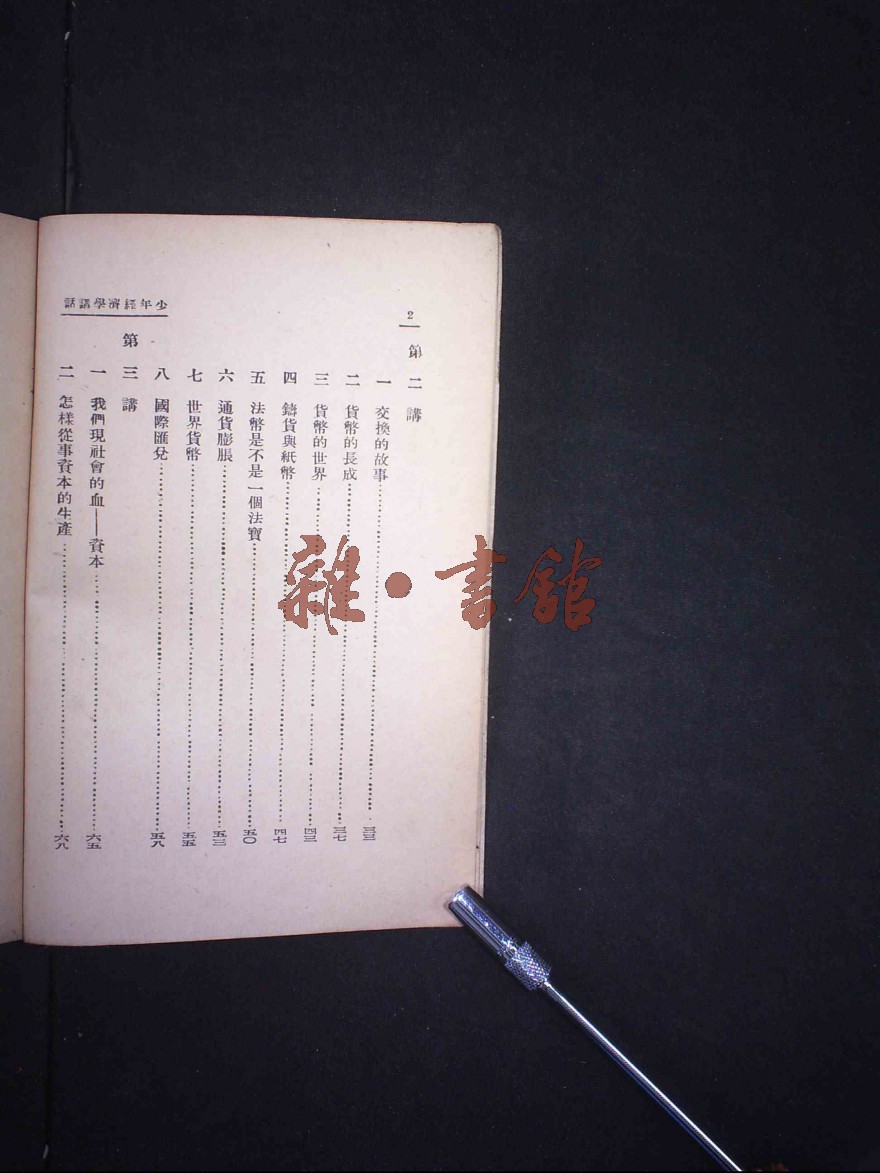 少年經濟學講話
2
第二講
一 交換的故事 三三
二 貨幣的長成 三七
三 貨幣的世界 四三
四 鑄貨與紙幣 四七
五 法幣是不是一個法寶 五〇
六 通貨膨脹 五三
七 世界貨幣 五五
八 國際匯兌 五八
第三講
一 我們現社會的血——資本 六五
二 怎樣從事資本的生產 六八
雜·書館